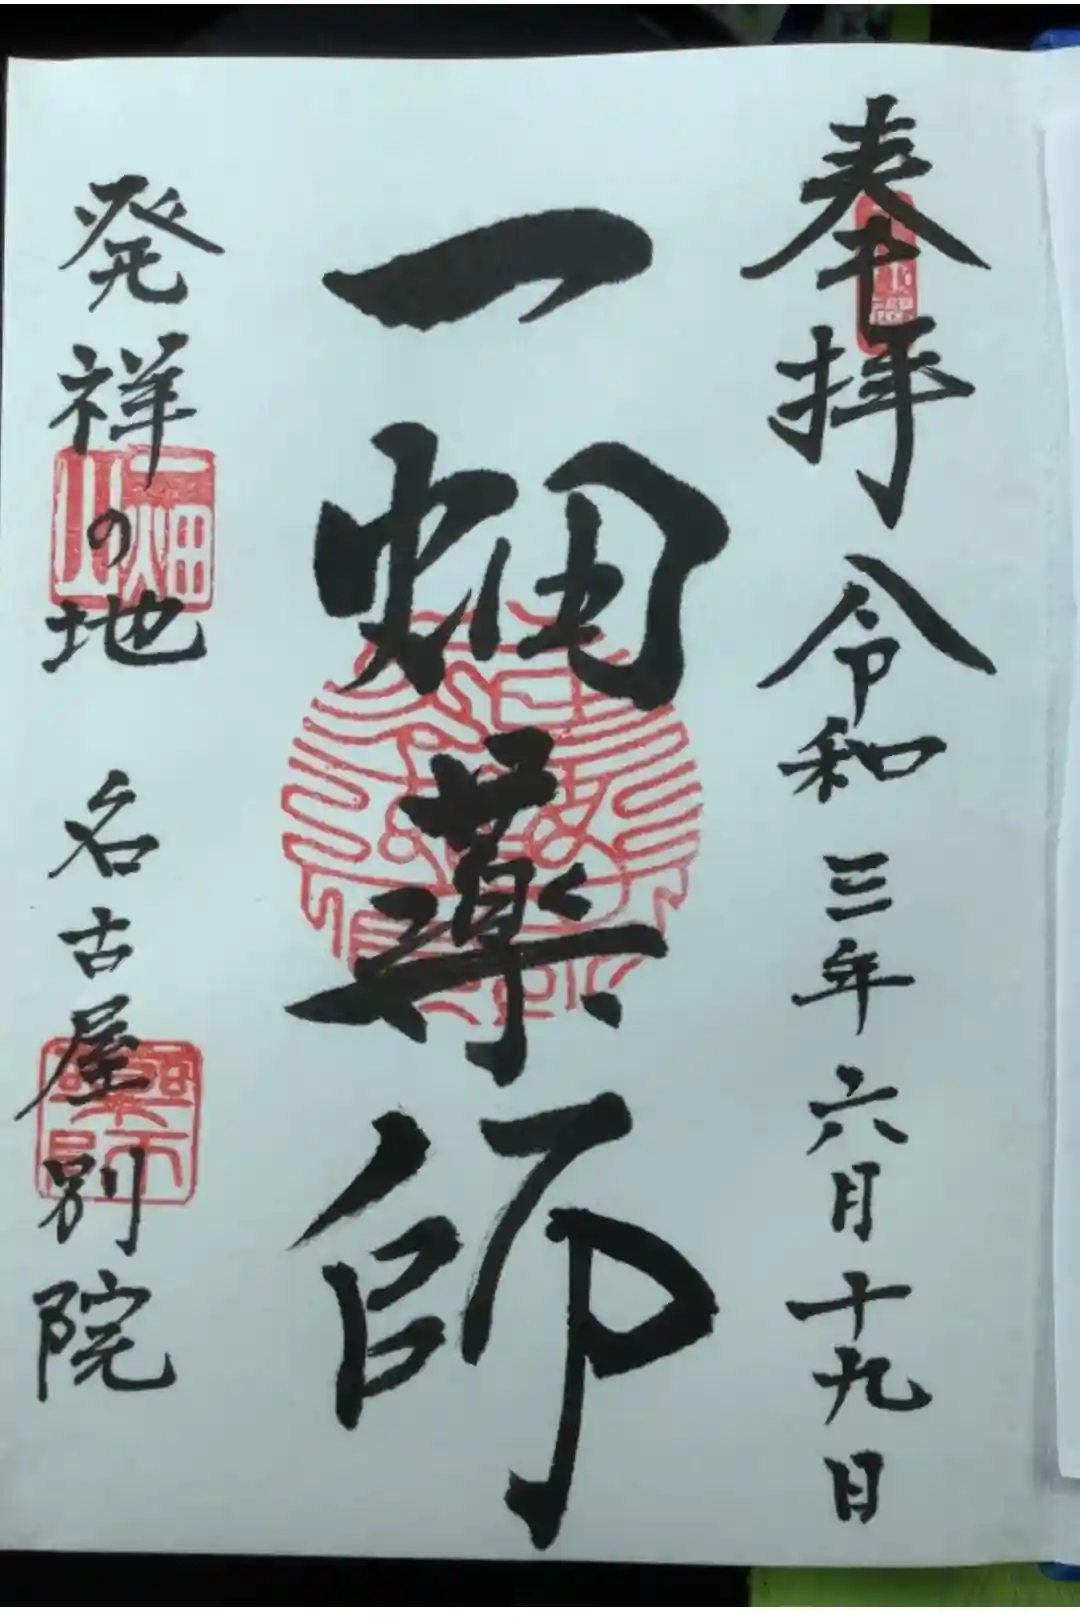 奉拝 令和三年六月十九日
一畑薬師
発祥の地 名古屋別院
一畑山